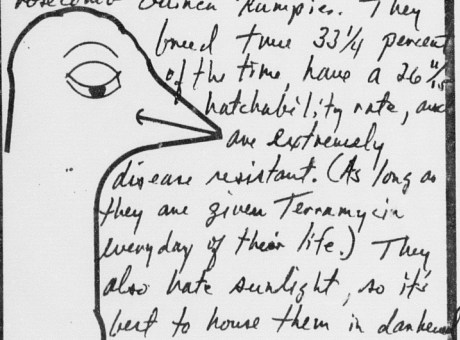 Guinea Rumpies. They
breed true 33 1/4 percent
of the time, have a 26
hatchability rate, and
are extremely
disease resistant. (As long as
they are given Terramycin
everyday of their life.) They
also hate sunlight, so it's
best to house them in